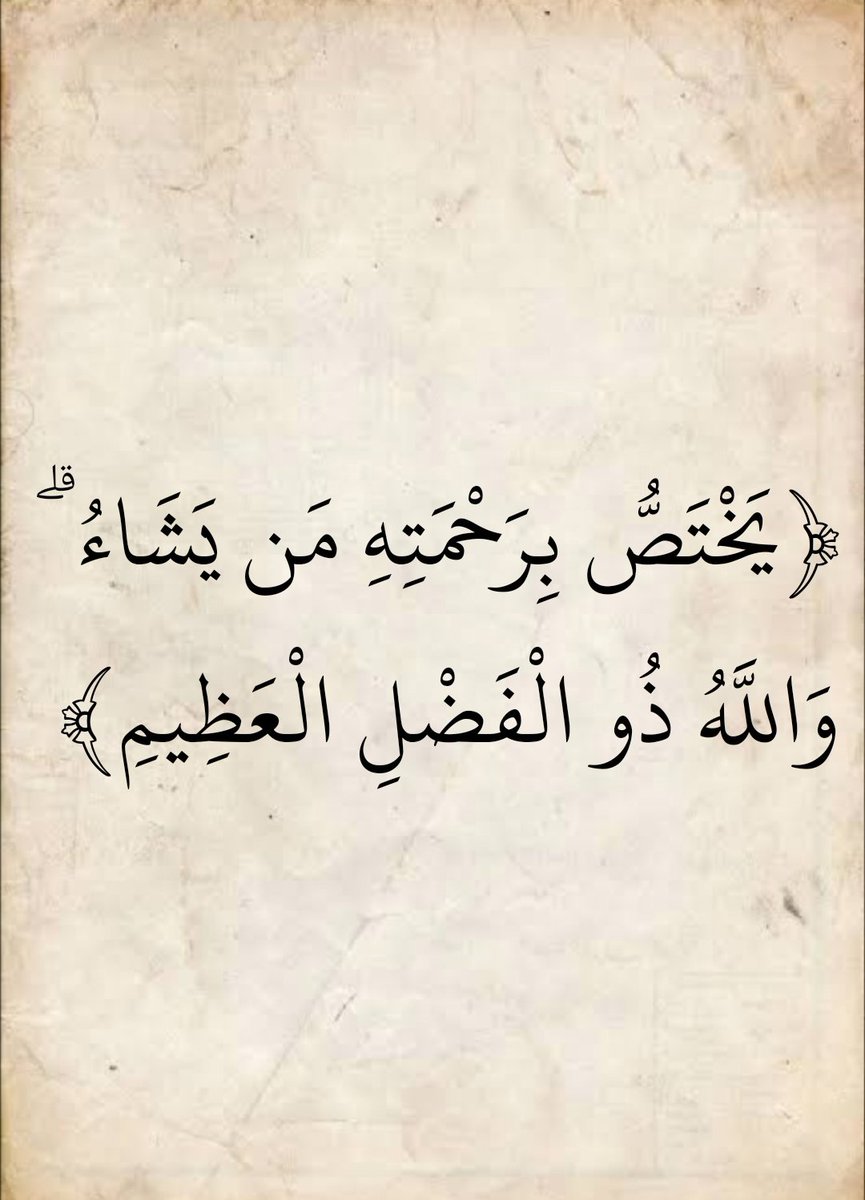 ﴿يَخْتَصُّ بِرَحْمَتِهِ مَن يَشَاءُ ۗ
وَاللَّهُ ذُو الْفَضْلِ الْعَظِيمِ﴾